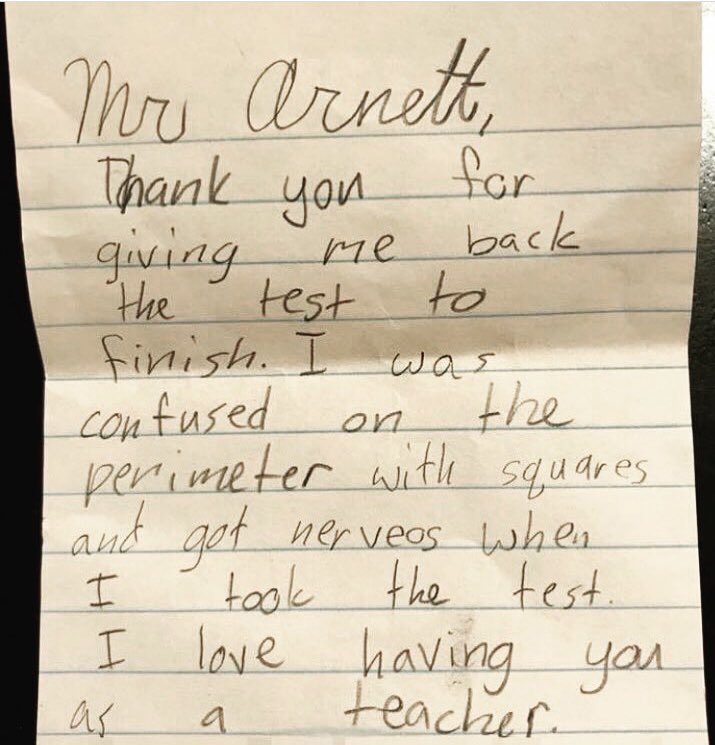 Mr Arnett,
Thank you for
giving me back
the test to
finish. I was
confused on the
perimeter with squares
and got nerveos when
I took the test.
I love having you
as a teacher.